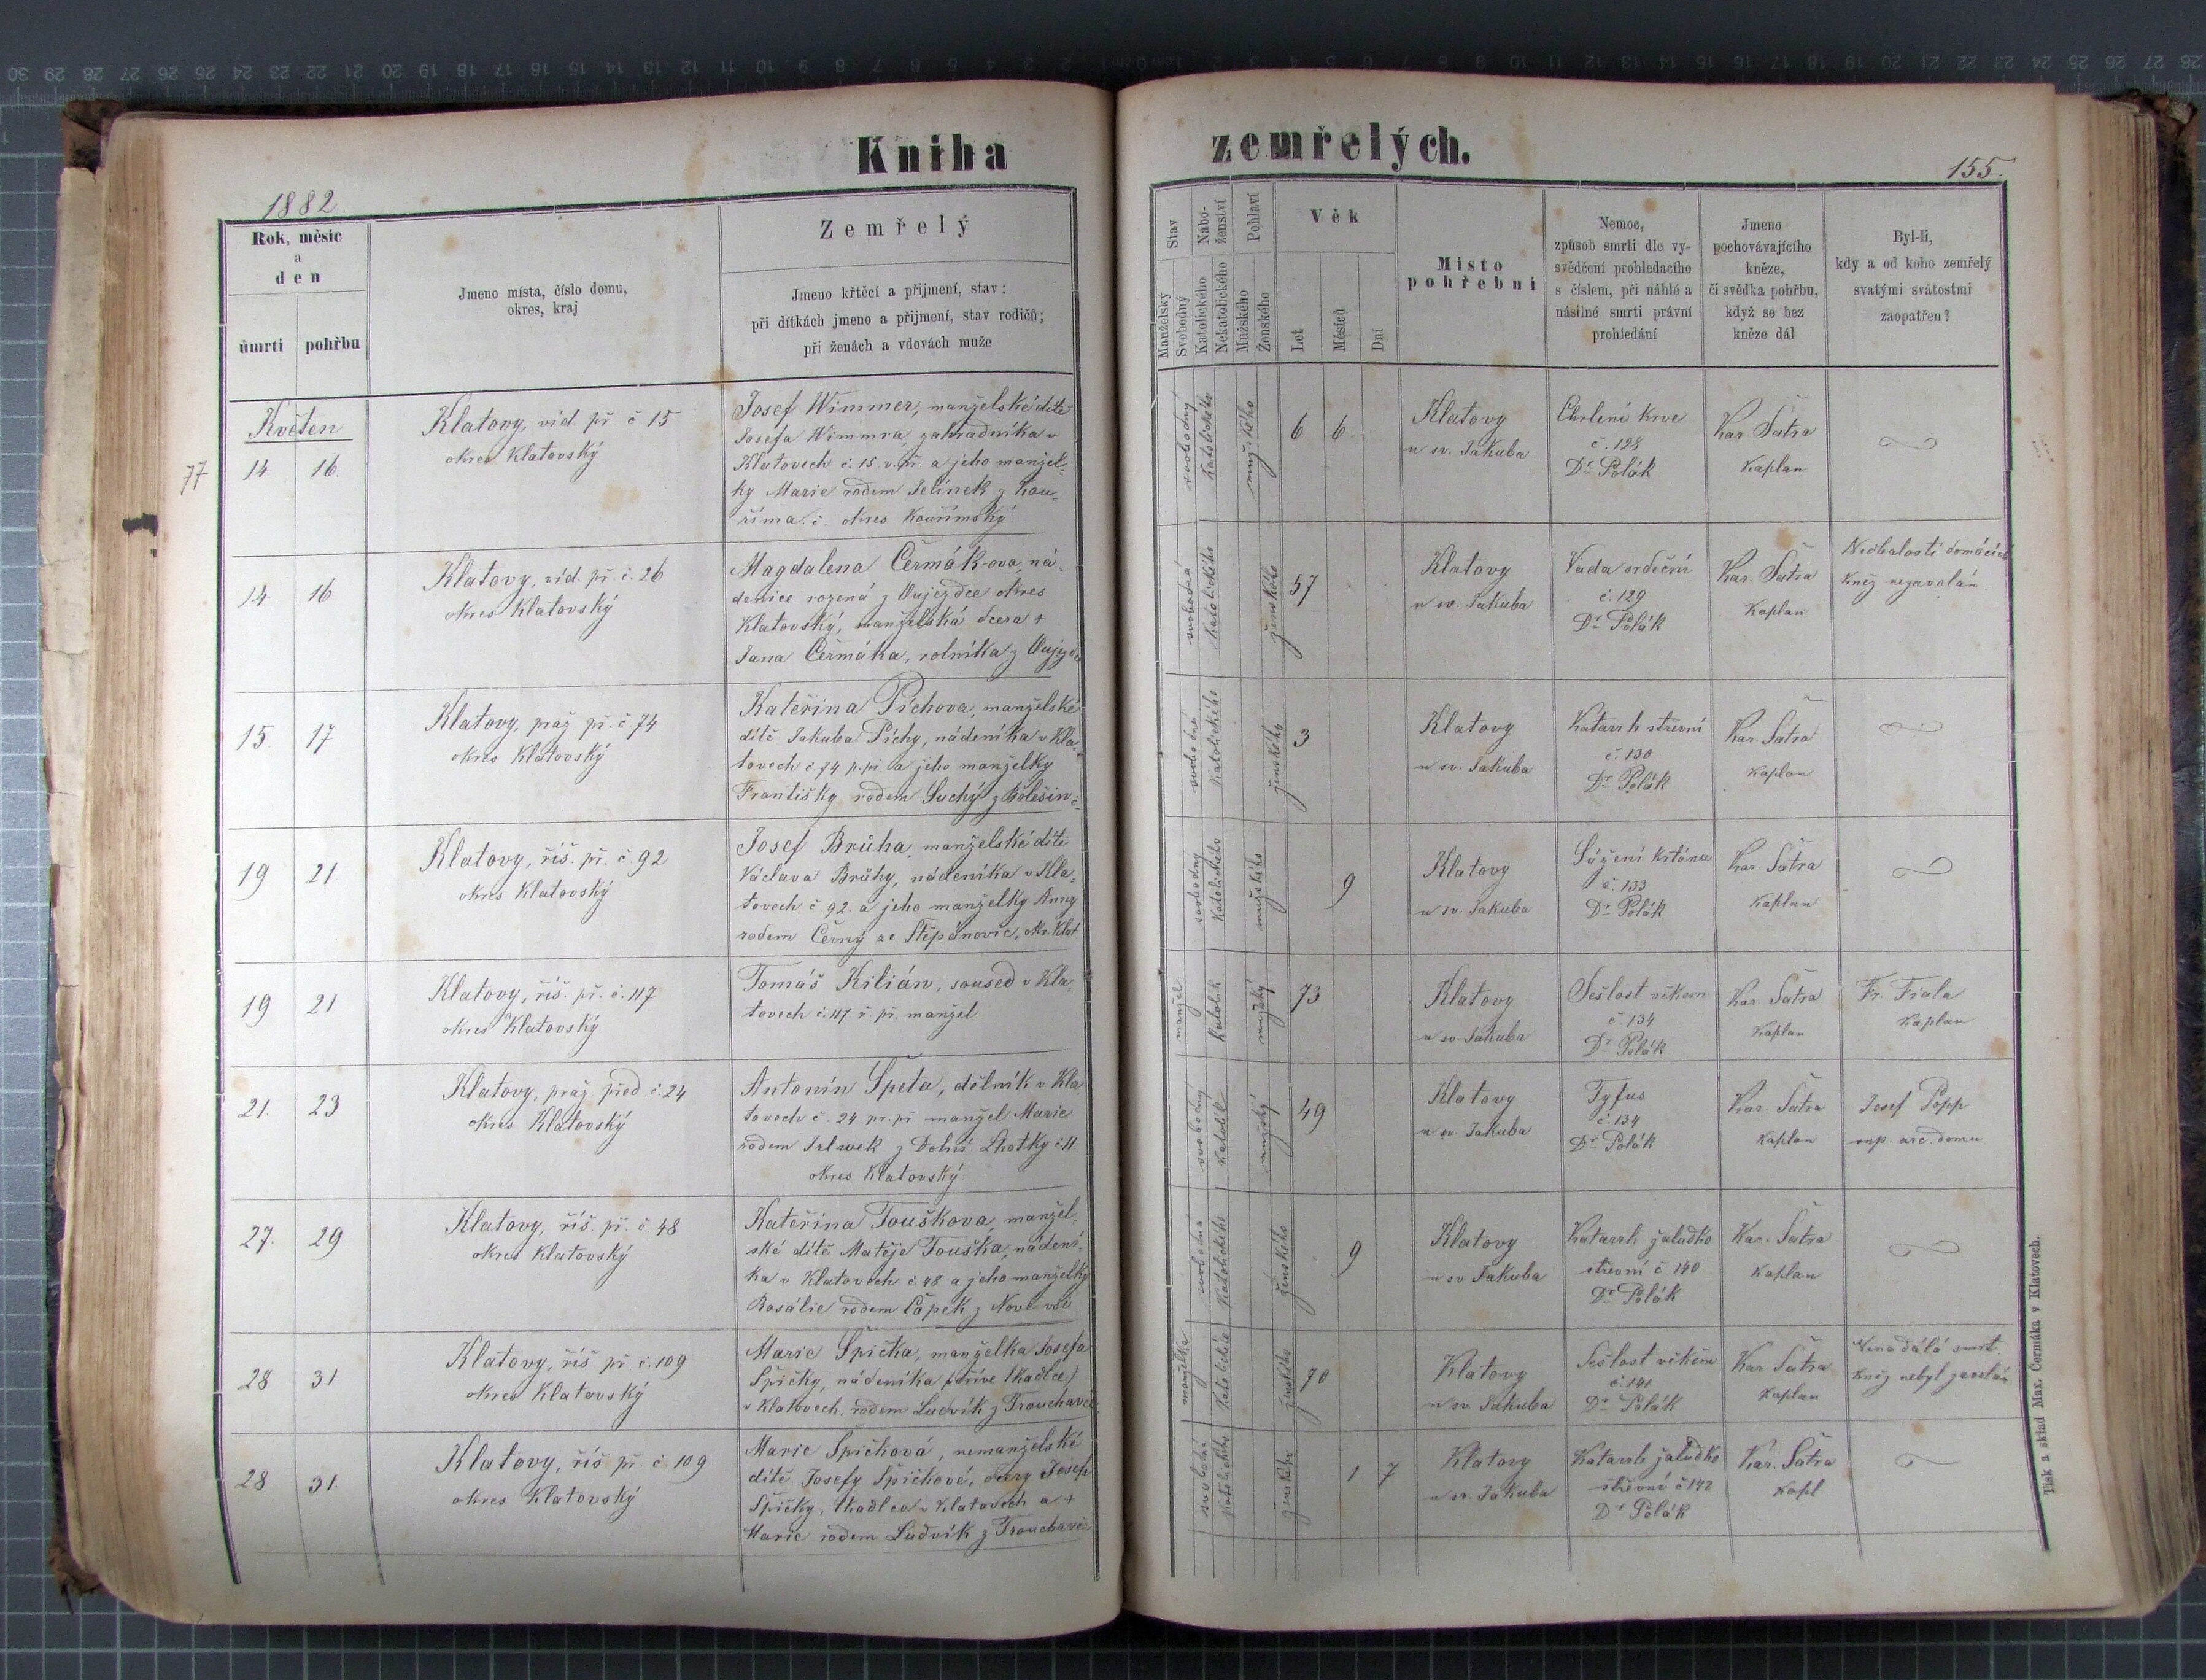 Kniha zemřelých.
155.
1882
Rok, měsíc
a
den
úmrtí pohřbu
Jmeno místa, číslo domu,
okres, kraj
Zemřelý
Jmeno křtěcí a přijmení, stav:
při dítkách jmeno a přijmení, stav rodičů;
při ženách a vdovách muže
Stav
Manželský
Svobodný
Nábo-
ženství
Katolického
Nekatolického
Pohlaví
Mužského
Ženského
Věk
Let
Měsíců
Dní
Místo
pohřební
Nemoc,
způsob smrti dle vy-
svědčení prohledacího
s číslem, při náhlé a
násilné smrti právní
prohledání
Jmeno
pochovávajícího
kněze,
či svědka pohřbu,
když se bez
kněze dál
Byl-li,
kdy a od koho zemřelý
svatými svátostmi
zaopatřen?
Květen
77
14 16.
Klatovy, víd. př. č 15
okres Klatovský
Josef Wimmer, manželské dítě
Josefa Wimmra, zahradníka v
Klatovech č. 15 v. př. a jeho manžel-
ky Marie rodem Jelínek z Kou-
říma. č. okres Kouřimský
svobodný
katolického
mužského
6 6
Klatovy
u sv. Jakuba
Chrlení krve
č. 128
Dr Polák
Kar. Šatra
Kaplan
14 16
Klatovy, víd. př. č. 26
okres Klatovský
Magdalena Čermák-ova, ná-
denice rozená z Oujezdce okres
Klatovský, manželská dcera +
Jana Čermáka, rolníka z
svobodná
katolického
ženského
57
Klatovy
u sv. Jakuba
Vada srdeční
č. 129
Dr Polák
Kar. Šatra
Kaplan
Nedbalostí domácích
kněz nezavolán
15. 17
Klatovy, praž. př. č 74
okres Klatovský
Kateřina Píchova, manželské
dítě Jakuba Píchy, nádeníka v Kla-
tovech č 74 p. př. a jeho manželky
Františky rodem Suchý z Bolešin č.
svobodná
katolického
ženského
3
Klatovy
u sv. Jakuba
Katarrh střevní
č. 130
Dr Polák
Kar. Šatra
Kaplan
19 21.
Klatovy, říš. př. č. 92
okres Klatovský
Josef Brůha, manželské dítě
Václava Brůhy, nádeníka v Kla-
tovech č 92. a jeho manželky Anny
rodem Černý ze Štěpánovic, okr. Klat
svobodný
katolického
mužského
9
Klatovy
u sv. Jakuba
Súžení křtánu
č. 133
Dr Polák
Kar. Šatra
Kaplan
19 21
Klatovy, říš. př. č. 117
okres Klatovský
Tomáš Kilián, soused v Kla-
tovech č. 117 ř. př. manžel
manžel
katolík
mužský
73
Klatovy
u sv. Jakuba
Sešlost věkem
č. 134
Dr Polák
Kar. Šatra
Kaplan
Fr. Fiala
Kaplan
21. 23
Klatovy, praž. před. č. 24
okres Klatovský
Antonín Špeta, dělník v Kla
tovech č. 24 pr. př. manžel Marie
rodem z Dolní Lhotky č. 11.
okres Klatovský
svobodný
katolík
mužský
49
Klatovy
u sv. Jakuba
Tyfus
č. 134
Dr Polák
Kar. Šatra
Kaplan
Josef Popp
arc. domu.
27. 29
Klatovy, říš. př. č. 48
okres Klatovský
Kateřina Touškova, manžel
ské dítě Matěje Touška, nádení-
ka v Klatovech č. 48 a jeho manželky
Rosálie rodem Čápek z Nové vsi
svobodná
katolického
ženského
9
Klatovy
u sv Jakuba
Katarrh žaludko
střevní č. 140
Dr Polák
Kar. Šatra
Kaplan
28 31
Klatovy, říš př. č. 109
okres Klatovský
Marie Špička, manželka Josefa
Špičky, nádeníka (dříve tkadlce)
v Klatovech, rodem Ludvík z
manželka
katolického
ženského
70
Klatovy
u sv. Jakuba
Sešlost věkem
č. 141
Dr Polák
Kar. Šatra
Kaplan
Nenadálá smrt.
kněz nebyl zavolán
28 31.
Klatovy, říš. př. č. 109
okres Klatovský
Marie Špičková, nemanželské
dítě Josefy Špičkové, dcery Josefa
Špičky, tkadlce v Klatovech a +
Marie rodem Ludvík z
svobodná
katolického
ženského
1 7
Klatovy
u sv. Jakuba
Katarrh žaludko
střevní č 142
Dr Polák
Kar. Šatra
kapl
Tisk a sklad Max. Čermáka v Klatovech.